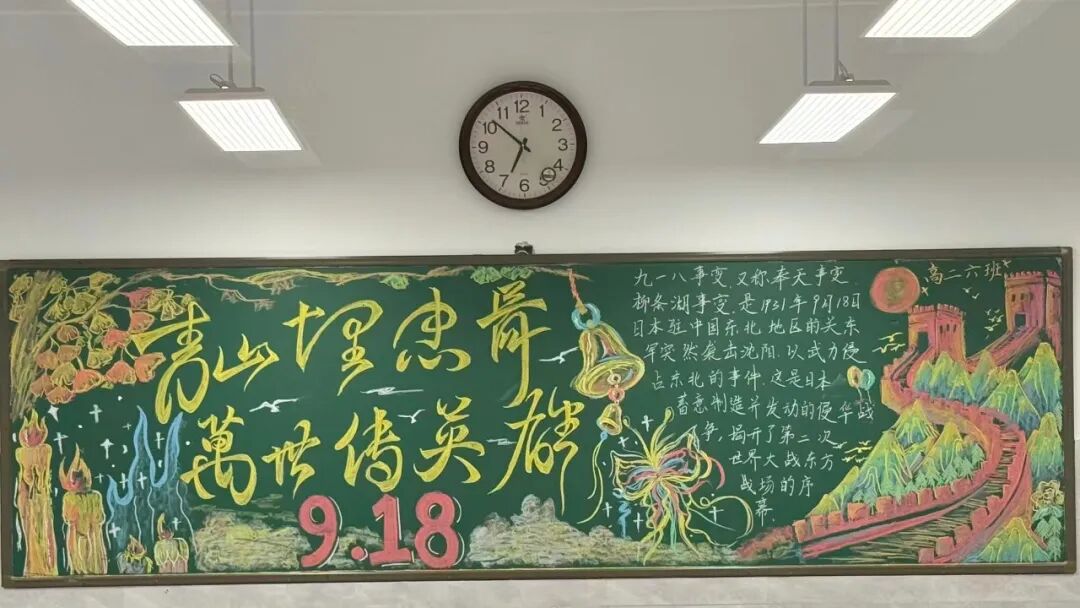 12 1 2 3 4 5 6 7 8 9 10 11
青山埋忠骨
萬世傳英雄
9.18
九一八事变，又称奉天事变、
柳条湖事变，是1931年9月18日
日本驻中国东北地区的关东
军突然袭击沈阳，以武力侵
占东北的事件。这是日本
蓄意制造并发动的侵华战
争，揭开了第二次
世界大战东方
战场的序
幕。
高二六班